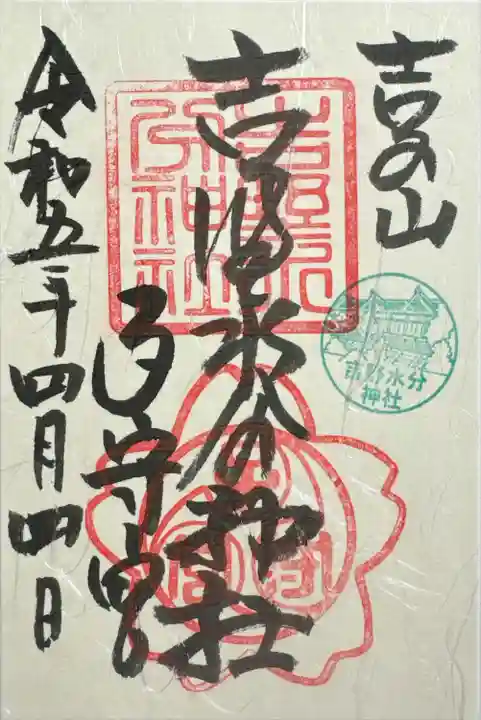 吉の山
吉野水分神社
子守宮
令和五年四月四日
吉野水分神社
吉野水分
神社